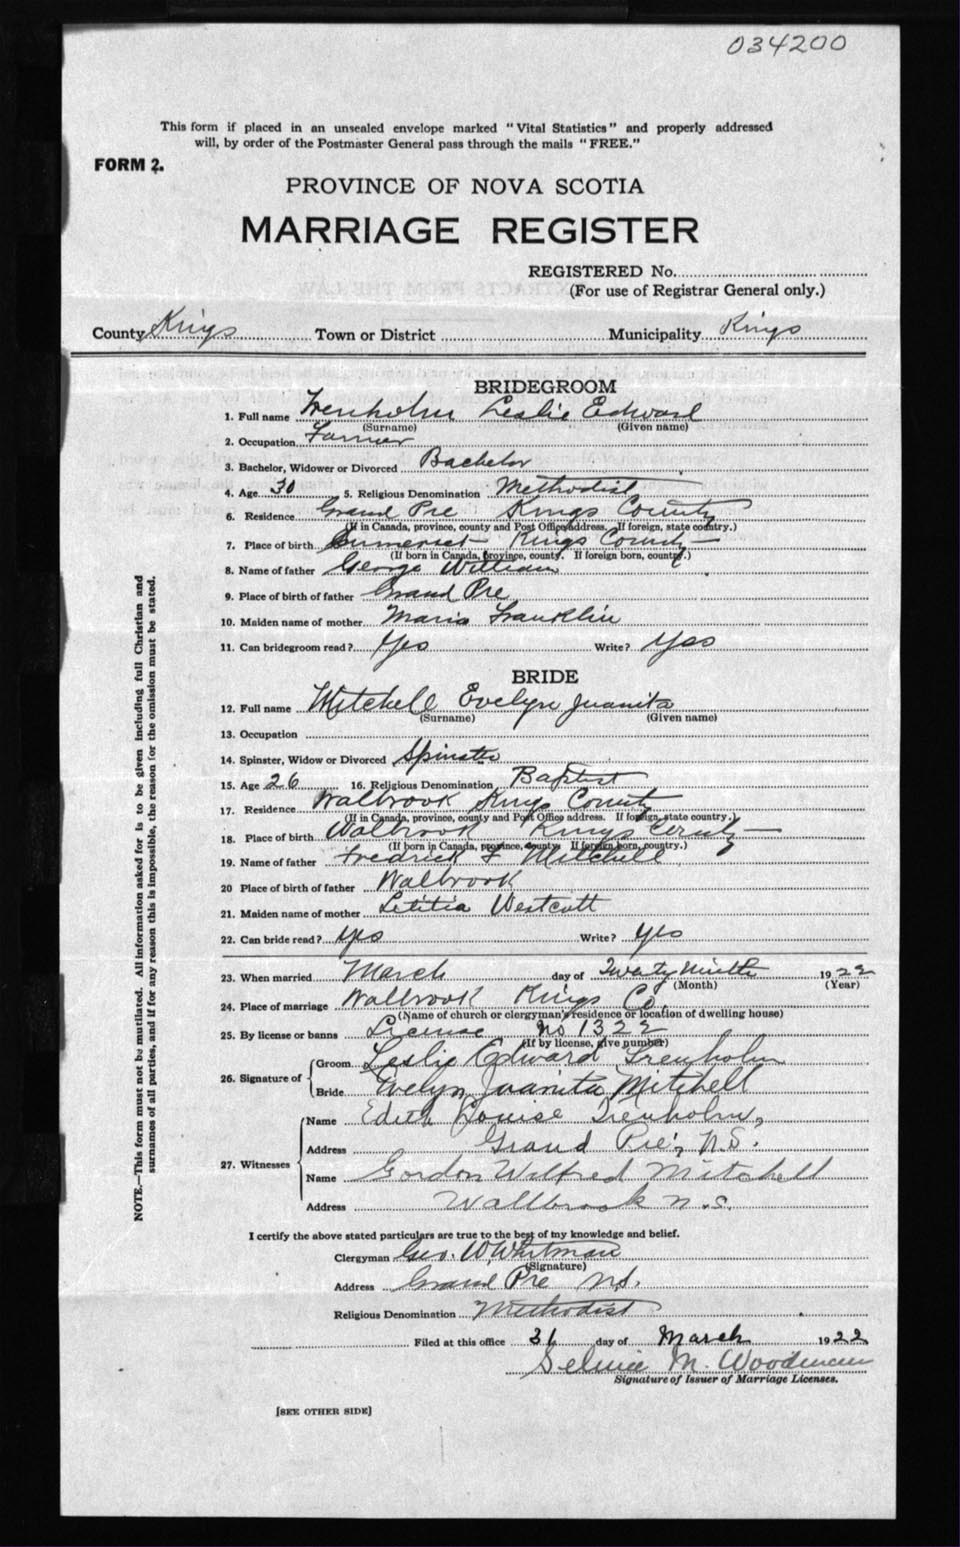 034200
This form if placed in an unsealed envelope marked "Vital Statistics" and properly addressed
will, by order of the Postmaster General pass through the mails "FREE."
FORM 2.
PROVINCE OF NOVA SCOTIA
MARRIAGE REGISTER
REGISTERED No.
(For use of Registrar General only.)
County Kings Town or District Municipality Kings
BRIDEGROOM
1. Full name Trenholm Leslie Edward
(Surname) (Given name)
2. Occupation Farmer
3. Bachelor, Widower or Divorced Bachelor
4. Age 30 5. Religious Denomination Methodist
6. Residence Grand Pre Kings County
(If in Canada, province, county and Post Office address. If foreign, state country.)
7. Place of birth Somerset Kings County
(If born in Canada, province, county. If foreign born, country.)
8. Name of father George William
9. Place of birth of father Grand Pre
10. Maiden name of mother Maria Franklin
11. Can bridegroom read? Yes Write? Yes
BRIDE
12. Full name Mitchell Evelyn Juanita
(Surname) (Given name)
13. Occupation
14. Spinster, Widow or Divorced Spinster
15. Age 26 16. Religious Denomination Baptist
17. Residence Walbrook Kings County
(If in Canada, province, county and Post Office address. If foreign, state country.)
18. Place of birth Walbrook Kings County
(If born in Canada, province, county. If foreign born, country.)
19. Name of father Fredrick F Mitchell
20 Place of birth of father Walbrook
21. Maiden name of mother Letitia Westcott
22. Can bride read? yes Write? yes
23. When married March day of Twenty Ninth 1922
(Month) (Year)
24. Place of marriage Walbrook Kings Co.
(Name of church or clergyman's residence or location of dwelling house)
25. By license or banns License No 1322
(If by license, give number)
26. Signature of Groom Leslie Edward Trenholm
Bride Evelyn Juanita Mitchell
27. Witnesses Name Edith Louise Trenholm,
Address Grand Pre, N.S.
Name Gordon Wilfred Mitchell
Address Wallbrook N.S.
I certify the above stated particulars are true to the best of my knowledge and belief.
Clergyman Geo. W. Whitman
(Signature)
Address Grand Pre N.S.
Religious Denomination Methodist
Filed at this office 31 day of March 1922
M. Woodman
Signature of Issuer of Marriage Licenses.
[SEE OTHER SIDE]
NOTE.—This form must not be mutilated. All information asked for is to be given including full Christian and
surnames of all parties, and if for any reason this is impossible, the reason for the omission must be stated.